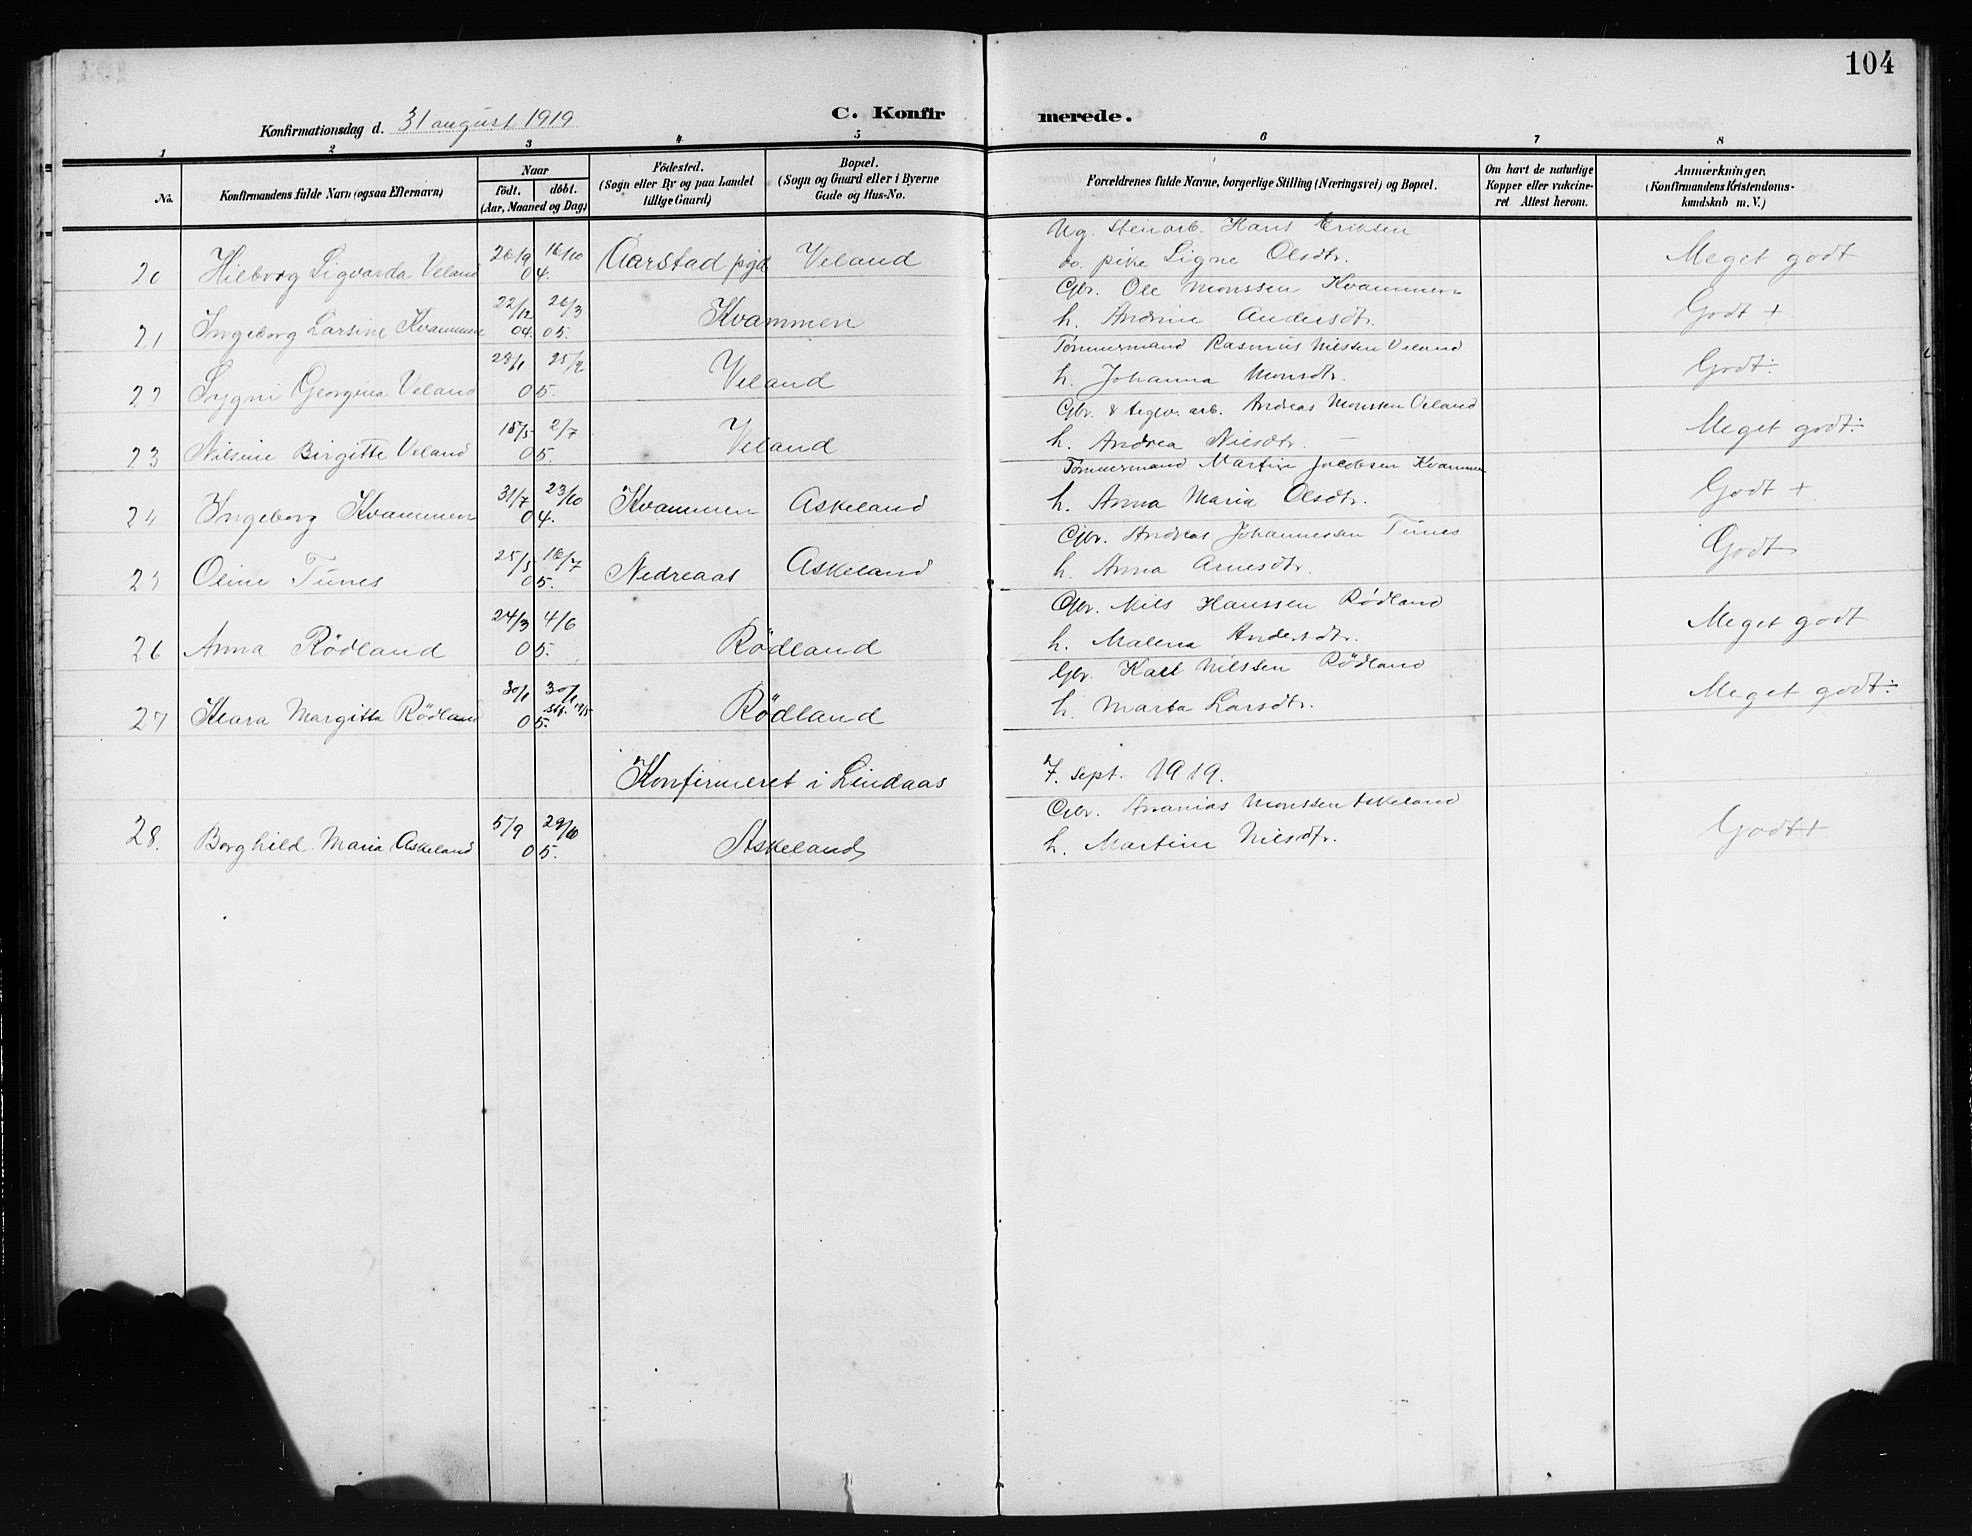 104
Konfirmationsdag d. 31 august 1919
C. Konfirmerede.
1 2 3 4 5 6 7 8
No. Konfirmandens fulde Navn (ogsaa Efternavn) Naar født. døbt. (Aar, Maaned og Dag) Fødested. (Sogn eller By og paa Landet tillige Gaard) Bopæl. (Sogn og Gaard eller i Byerne Gade og Hus-No. Forældrenes fulde Navne, borgerlige Stilling (Næringsvei) og Bopæl. Om havt de naturlige Kopper eller vakcineret Attest herom. Anmærkninger. (Konfirmandens Kristendomskundskab m. V.)
Ug. stenarb. Hans Eriksen
20 Hilborg Sigvarda Veland 26/9 16/10 04. Aarstad pgd Veland do. pike Signe Olsdtr. Meget godt
Gbr. Ole Monssen Kvammen
21 Ingeborg Larsine Kvammen 22/12 04. 26/3 05. Kvammen h. Andrine Andersdtr. Godt +
Tømmermand Rasmus Nilssen Veland
22 Sygni Georgina Veland 28/1 25/2 05. Veland h. Johanna Monsdtr. Godt÷
Gbr. & teglv. arb. Andreas Monssen Veland
23 Nilsine Birgitte Veland 15/5 2/7 05. Veland h. Andrea Nilsdtr. — Meget godt÷
Tømmermand Martin Jacobsen Kvammen
24 Ingeborg Kvammen 31/7 23/10 04. Kvammen Askeland h. Anna Maria Olsdtr. Godt +
Gbr. Andreas Johannessen Tunes
25 Oline Tunes 25/5 16/7 05. Nedreaas Askeland h. Anna Arnesdtr. Godt
Gbr. Nils Hanssen Rödland
26 Anna Rödland 24/3 4/6 05. Rödland h. Malena Andersdtr. Meget godt
Gbr. Karl Nilssen Rödland
27 Klara Margitta Rödland 30/1 30/1 05. Rödland h. Marta Larsdtr. Meget godt÷
Konfirmeret i Lindaas 7. sept. 1919.
Gbr. Ananias Monssen Askeland
28. Borghild Maria Askeland 5/9 29/10 05. Askeland h. Martine Nilsdtr. Godt+